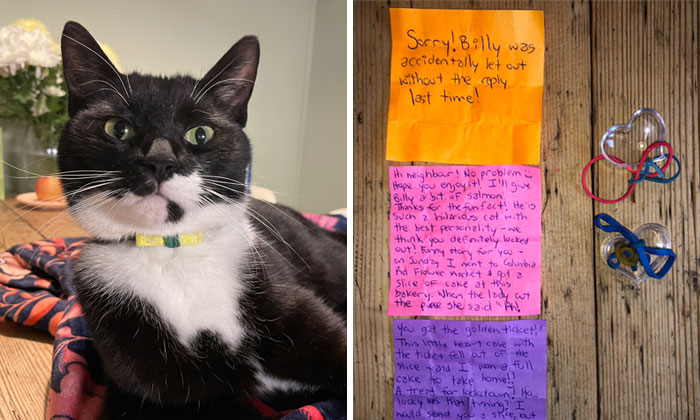 Sorry! Billy was
accidentally let out
without the reply
last time!
Hi neighbour! No problem
Hope you enjoy it! I'll give
Billy a bit of salmon.
Thanks for the fun fact! He's
such a hilarious cat with
the best personality - we
think you definitely lucked
out! Funny story for you -
on Sunday I went to Columbia
Rd Flower market & got a
slice of cake at this
bakery. When the lady cut
the piece she said "Ah!
You got the golden ticket!"
This little heart case with
the ticket fell out of the
slice - and I won a full
cake to take home!!
A treat for lockdown! How
lucky was that timing? I
would send you a slice but